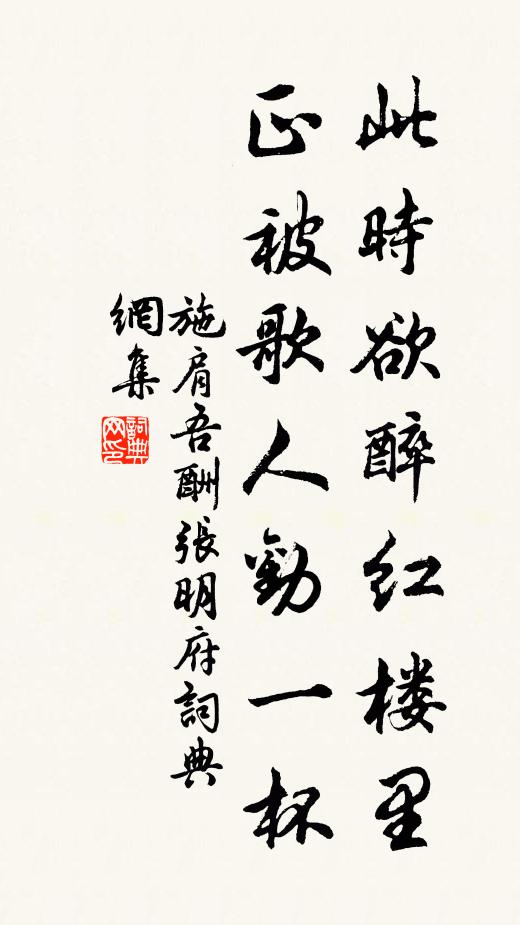 此時欲醉红楼里
正被歌人勸一杯
施肩吾酬張明府詞典
網集
詞典网印